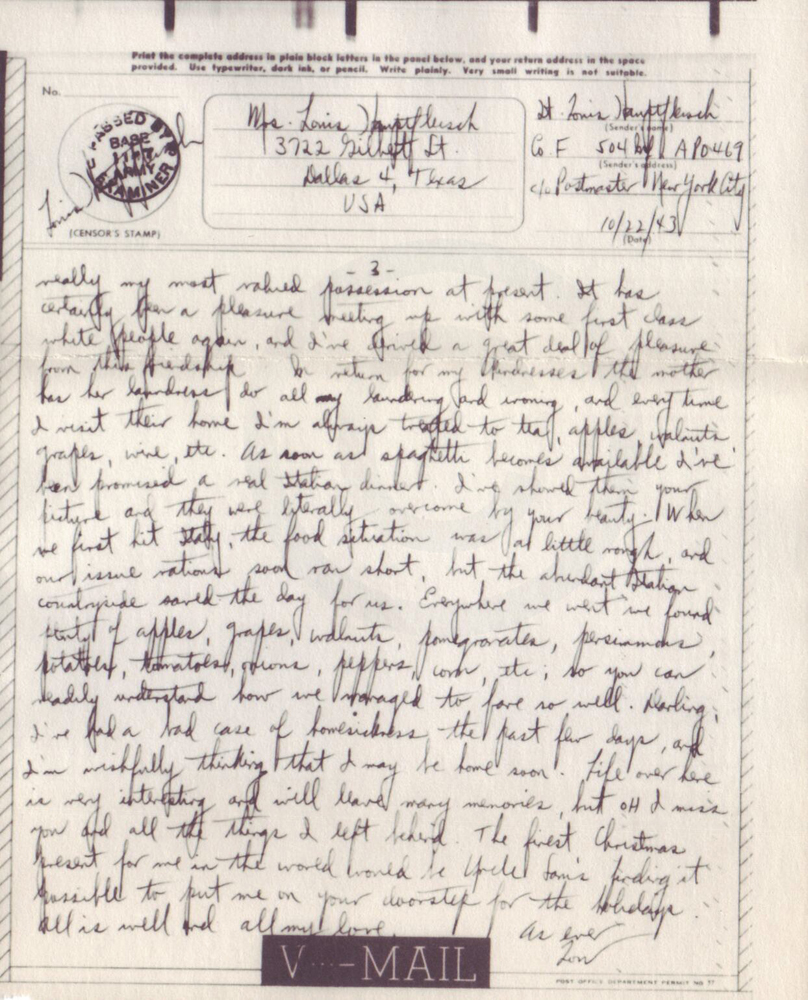 Print the complete address in plain block letters in the panel below, and your return address in the space
provided. Use typewriter, dark ink, or pencil. Write plainly. Very small writing is not suitable.
No.
PASSED BY
BASE
ARMY
EXAMINER
(CENSOR'S STAMP)
Mrs. Louis Hauptfleisch
3722 Gilbert St.
Dallas 4, Texas
USA
Lt. Louis Hauptfleisch
(Sender's name)
Co F 504 APO 469
(Sender's address)
c/o Postmaster New York City
10/22/43
(Date)
- 3 -
really my most valued possession at present. It has
certainly been a pleasure meeting up with some first class
white people again, and I've derived a great deal of pleasure
from this friendship. In return for my kindnesses the mother
has her laundress do all my laundering and ironing, and every time
I visit their home I'm always treated to tea, apples, walnuts
grapes, wine, etc. As soon as spaghetti becomes available I've
been promised a real Italian dinner. I've showed them your
picture and they were literally overcome by your beauty. When
we first hit Italy, the food situation was a little rough, and
our issue rations soon ran short, but the abundant Italian
countryside saved the day for us. Everywhere we went we found
plenty of apples, grapes, walnuts, pomegranates, persimmons,
potatoes, tomatoes, onions, peppers, corn, etc; so you can
readily understand how we managed to fare so well. Darling,
I've had a bad case of homesickness the past few days, and
I'm wishfully thinking that I may be home soon. Life over here
is very interesting and will leave many memories, but OH I miss
you and all the things I left behind. The finest Christmas
present for me in the world would be Uncle Sam's finding it
possible to put me on your doorstep for the holidays.
All is well and all my love.
As ever
Lou
V···—MAIL
POST OFFICE DEPARTMENT PERMIT NO